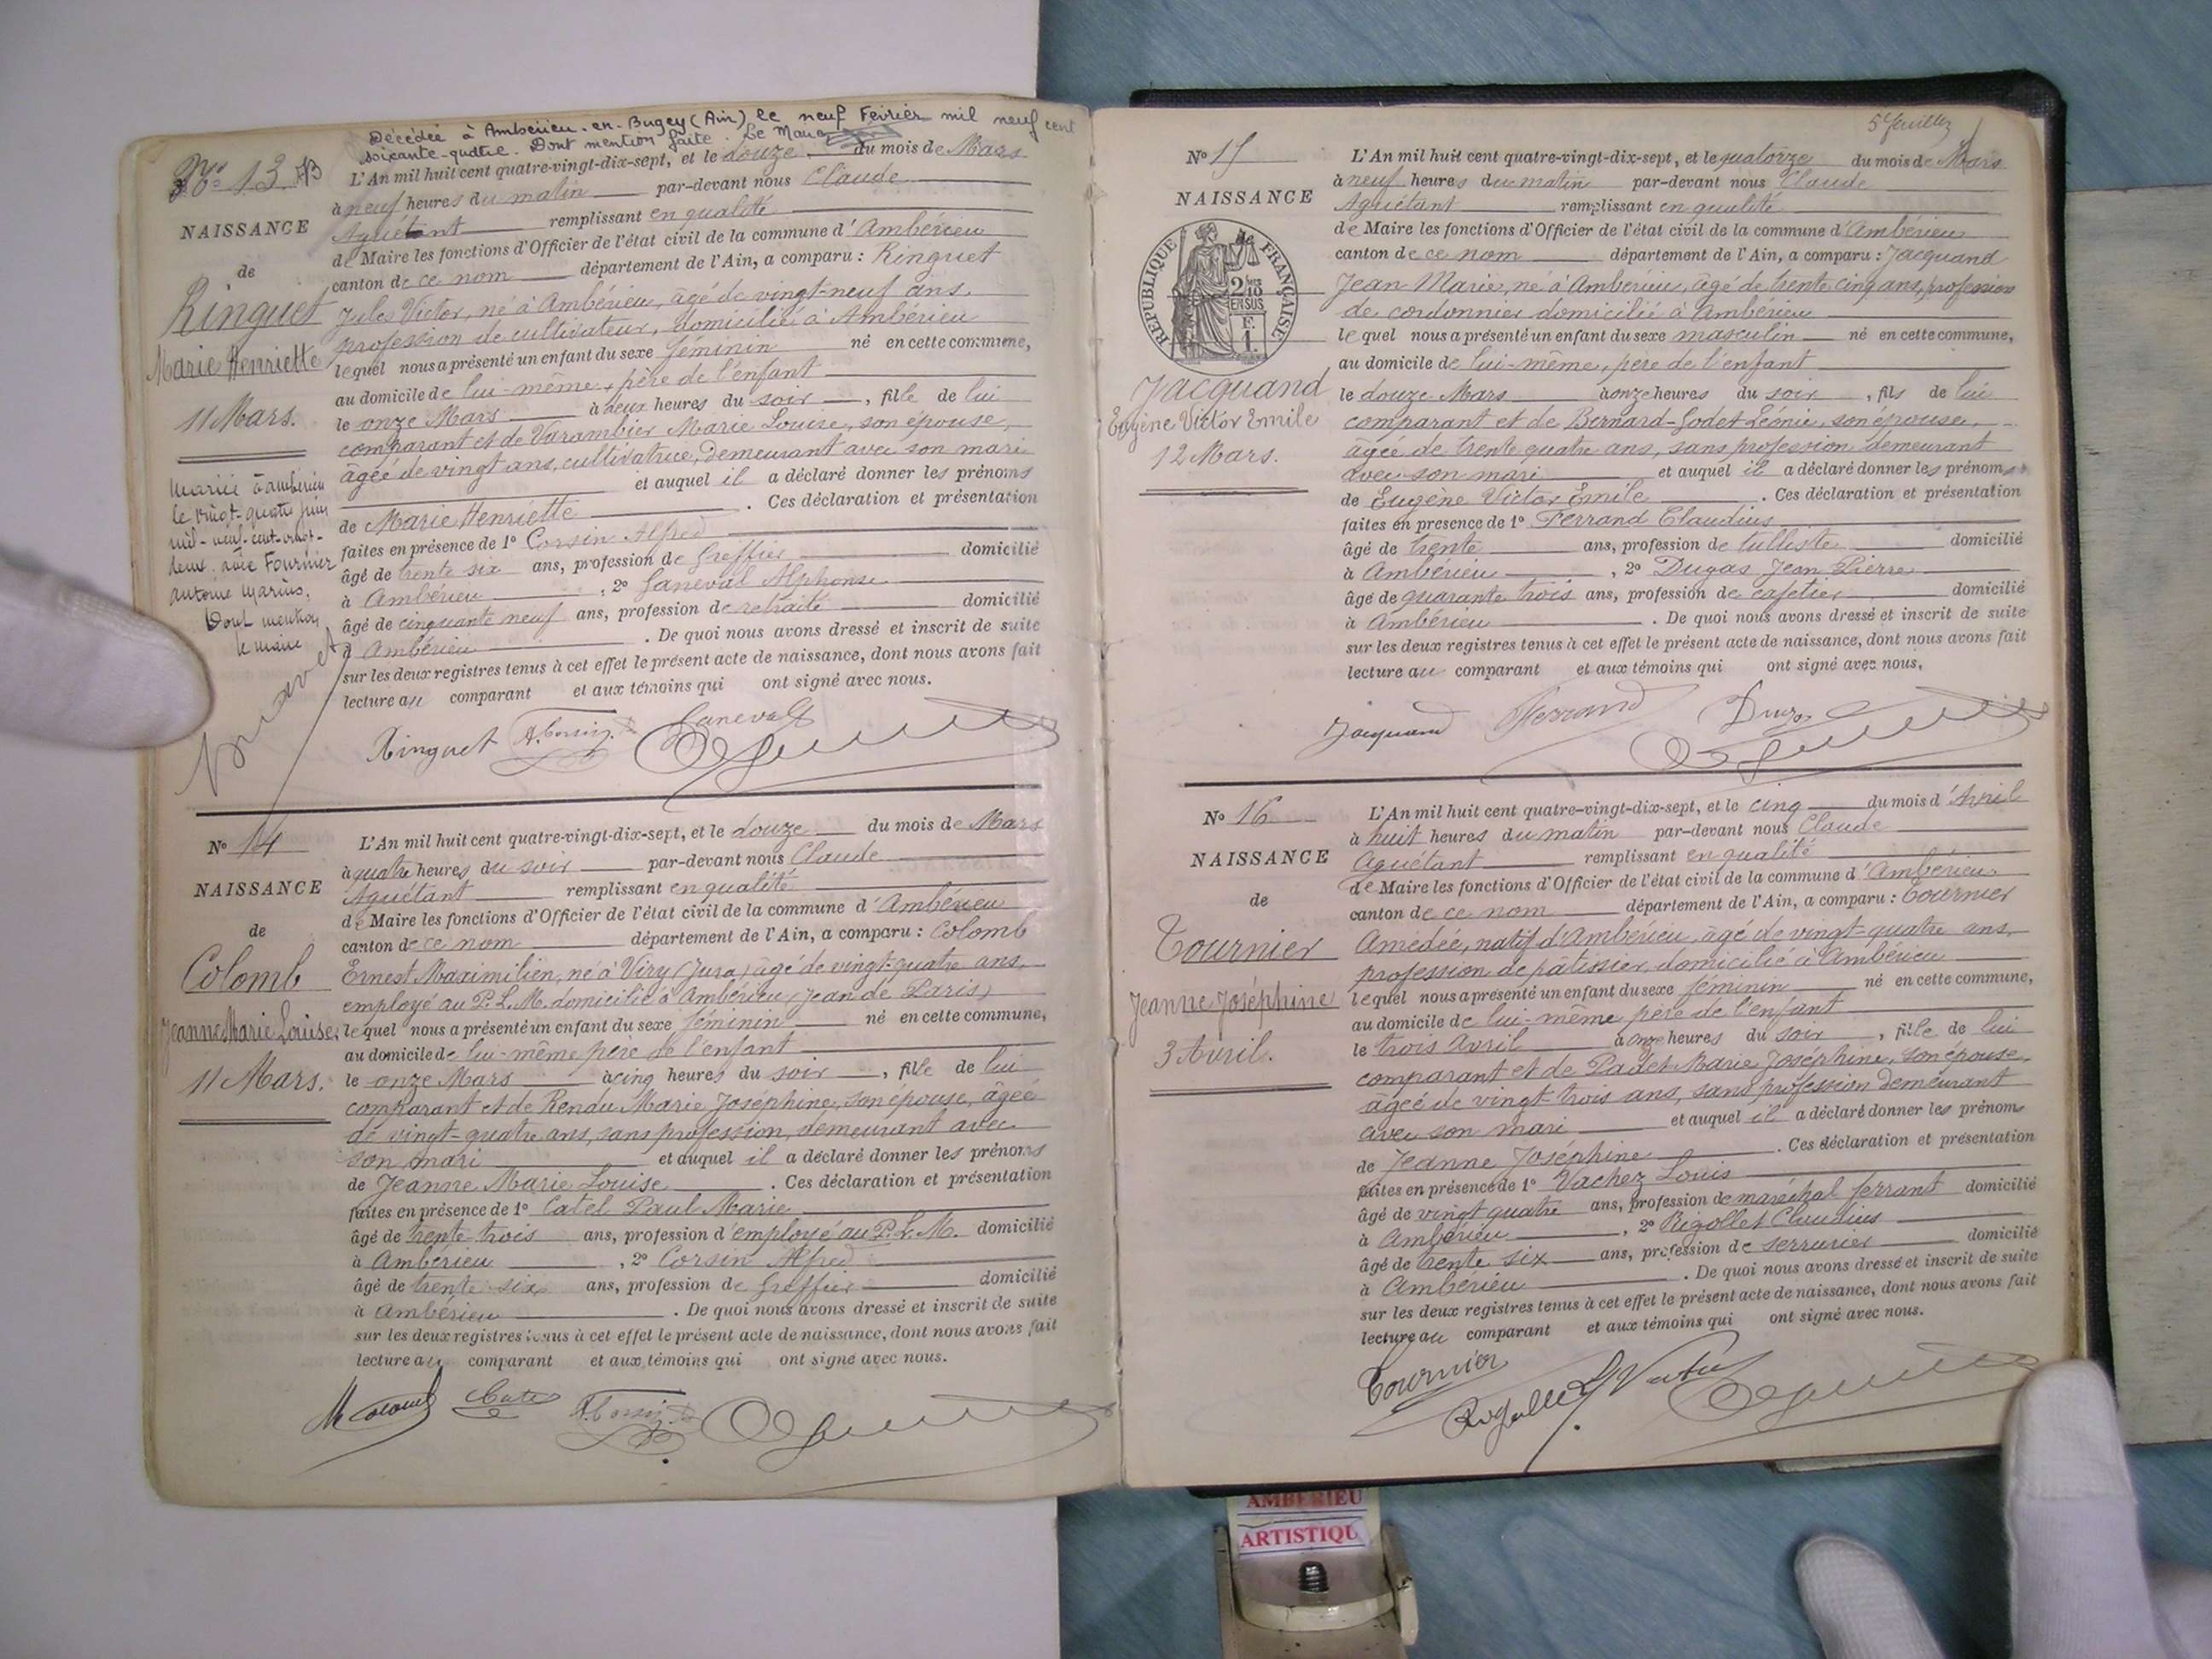 Décédée à Ambérieu-en-Bugey (Ain) le neuf Février mil neuf cent
soixante-quatre. Dont mention faite. Le Maire
No 13
L'An mil huit cent quatre-vingt-dix-sept, et le douze du mois de Mars
à neuf heures du matin par-devant nous Claude
NAISSANCE
Aguétant remplissant en qualité
de Maire les fonctions d'Officier de l'état civil de la commune d'Ambérieu
de
canton de ce nom département de l'Ain, a comparu : Ringuet
Ringuet
Jules Victor, né à Ambérieu, âgé de vingt-neuf ans,
profession de cultivateur, domicilié à Ambérieu
Marie Henriette
lequel nous a présenté un enfant du sexe féminin né en cette commune,
au domicile de lui-même, père de l'enfant
11 Mars.
le onze Mars à deux heures du soir, fille de lui
comparant et de Varambier Marie Louise, son épouse,
âgée de vingt ans, cultivatrice, demeurant avec son mari
et auquel il a déclaré donner les prénoms
de Marie Henriette. Ces déclaration et présentation
faites en présence de 1° Corsin Alfred
âgé de trente six ans, profession de Greffier domicilié
à Ambérieu, 2° Janeval Alphonse
âgé de cinquante neuf ans, profession de retraité domicilié
à Ambérieu. De quoi nous avons dressé et inscrit de suite
sur les deux registres tenus à cet effet le présent acte de naissance, dont nous avons fait
lecture au comparant et aux témoins qui ont signé avec nous.
Mariée à Ambérieu
le vingt-quatre juin
mil-neuf-cent-vingt-
deux avec Fournier
Antoine Marius.
Dont mention
le maire
Ringuet A. Corsin Janeval
No 14
L'An mil huit cent quatre-vingt-dix-sept, et le douze du mois de Mars
à quatre heures du soir par-devant nous Claude
NAISSANCE
Aguétant remplissant en qualité
de Maire les fonctions d'Officier de l'état civil de la commune d'Ambérieu
de
canton de ce nom département de l'Ain, a comparu : Colomb
Colomb
Ernest Maximilien, né à Viry (Jura) âgé de vingt-quatre ans,
employé au P.L.M. domicilié à Ambérieu (Jean de Paris)
Jeanne Marie Louise
lequel nous a présenté un enfant du sexe féminin né en cette commune,
au domicile de lui-même père de l'enfant
11 Mars.
le onze Mars à cinq heures du soir, fille de lui
comparant et de Rendu Marie Joséphine, son épouse, âgée
de vingt-quatre ans, sans profession, demeurant avec
son mari et auquel il a déclaré donner les prénoms
de Jeanne Marie Louise. Ces déclaration et présentation
faites en présence de 1° Catel Paul Marie
âgé de trente trois ans, profession d'employé au P.L.M. domicilié
à Ambérieu, 2° Corsin Alfred
âgé de trente six ans, profession de Greffier domicilié
à Ambérieu. De quoi nous avons dressé et inscrit de suite
sur les deux registres tenus à cet effet le présent acte de naissance, dont nous avons fait
lecture au comparant et aux témoins qui ont signé avec nous.
M Colomb Catel A. Corsin
5e feuillet
No 15
L'An mil huit cent quatre-vingt-dix-sept, et le quatorze du mois de Mars
à neuf heures du matin par-devant nous Claude
NAISSANCE
Aguétant remplissant en qualité
de Maire les fonctions d'Officier de l'état civil de la commune d'Ambérieu
canton de ce nom département de l'Ain, a comparu : Jacquand
RÉPUBLIQUE FRANÇAISE
2/10
EN SUS
F.
1.
Jean Marie, né à Ambérieu, âgé de trente cinq ans, profession
de cordonnier domicilié à Ambérieu
lequel nous a présenté un enfant du sexe masculin né en cette commune,
au domicile de lui-même, père de l'enfant
Jacquand
le douze Mars à onze heures du soir, fils de lui
Eugène Victor Emile
comparant et de Bernard-Godet Léonie, son épouse,
12 Mars.
âgée de trente quatre ans, sans profession demeurant
avec son mari et auquel il a déclaré donner les prénoms
de Eugène Victor Emile. Ces déclaration et présentation
faites en présence de 1° Ferrand Claudius
âgé de trente ans, profession de tulliste domicilié
à Ambérieu, 2° Dugas Jean Pierre
âgé de quarante trois ans, profession de cafetier domicilié
à Ambérieu. De quoi nous avons dressé et inscrit de suite
sur les deux registres tenus à cet effet le présent acte de naissance, dont nous avons fait
lecture au comparant et aux témoins qui ont signé avec nous,
Jacquand Ferrand Dugas
No 16
L'An mil huit cent quatre-vingt-dix-sept, et le cinq du mois d'Avril
à huit heures du matin par-devant nous Claude
NAISSANCE
Aguétant remplissant en qualité
de Maire les fonctions d'Officier de l'état civil de la commune d'Ambérieu
de
canton de ce nom département de l'Ain, a comparu : Tournier
Tournier
Amédée, natif d'Ambérieu, âgé de vingt-quatre ans,
profession de pâtissier, domicilié à Ambérieu
Jeanne Joséphine
lequel nous a présenté un enfant du sexe féminin né en cette commune,
au domicile de lui-même père de l'enfant
3 Avril.
le trois Avril à onze heures du soir, fille de lui
comparant et de Padet Marie Joséphine, son épouse,
âgée de vingt-trois ans, sans profession demeurant
avec son mari et auquel il a déclaré donner les prénoms
de Jeanne Joséphine. Ces déclaration et présentation
faites en présence de 1° Vachez Louis
âgé de vingt quatre ans, profession de maréchal ferrant domicilié
à Ambérieu, 2° Rigollet Claudius
âgé de trente six ans, profession de serrurier domicilié
à Ambérieu. De quoi nous avons dressé et inscrit de suite
sur les deux registres tenus à cet effet le présent acte de naissance, dont nous avons fait
lecture au comparant et aux témoins qui ont signé avec nous.
Tournier
Rigollet
AMBERIEU
ARTISTIQU